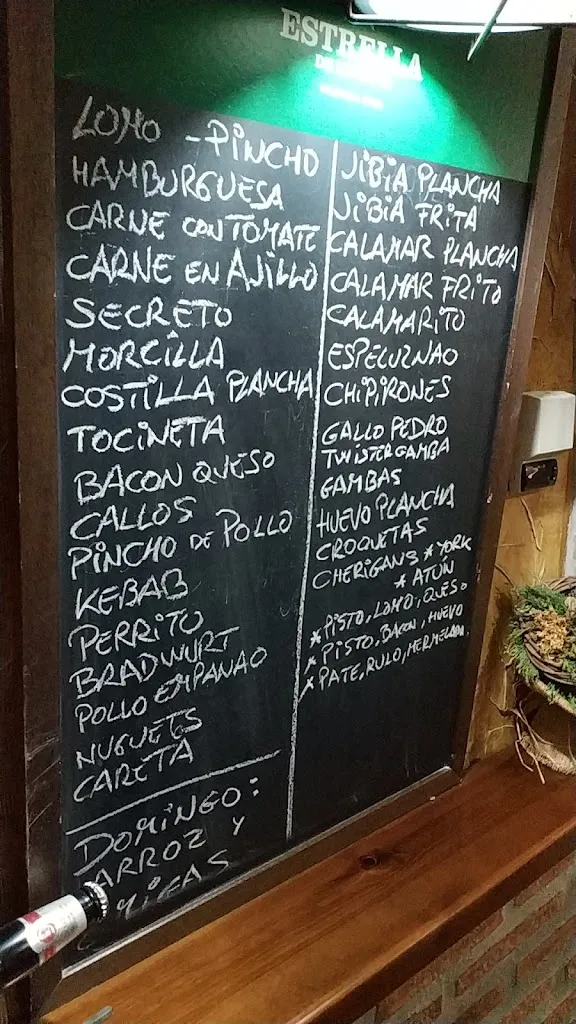 ESTRELLA
LOMO - PINCHO
HAMBURGUESA
CARNE CON TOMATE
CARNE EN AJILLO
SECRETO
MORCILLA
COSTILLA PLANCHA
TOCINETA
BACON QUESO
CALLOS
PINCHO DE POLLO
KEBAB
PERRITO
BRADWURT
POLLO EMPANAO
NUGUETS
CARETA
DOMINGO:
ARROZ Y
MIGAS
JIBIA PLANCHA
JIBIA FRITA
CALAMAR PLANCHA
CALAMAR FRITO
CALAMARITO
ESPELUZNAO
CHIPIRONES
GALLO PEDRO
TWISTER GAMBA
GAMBAS
HUEVO PLANCHA
CROQUETAS
CHERIGANS * YORK
* ATÚN
* PISTO, LOMO, QUESO
* PISTO, BACON, HUEVO
* PATE, RULO, MERMELADA